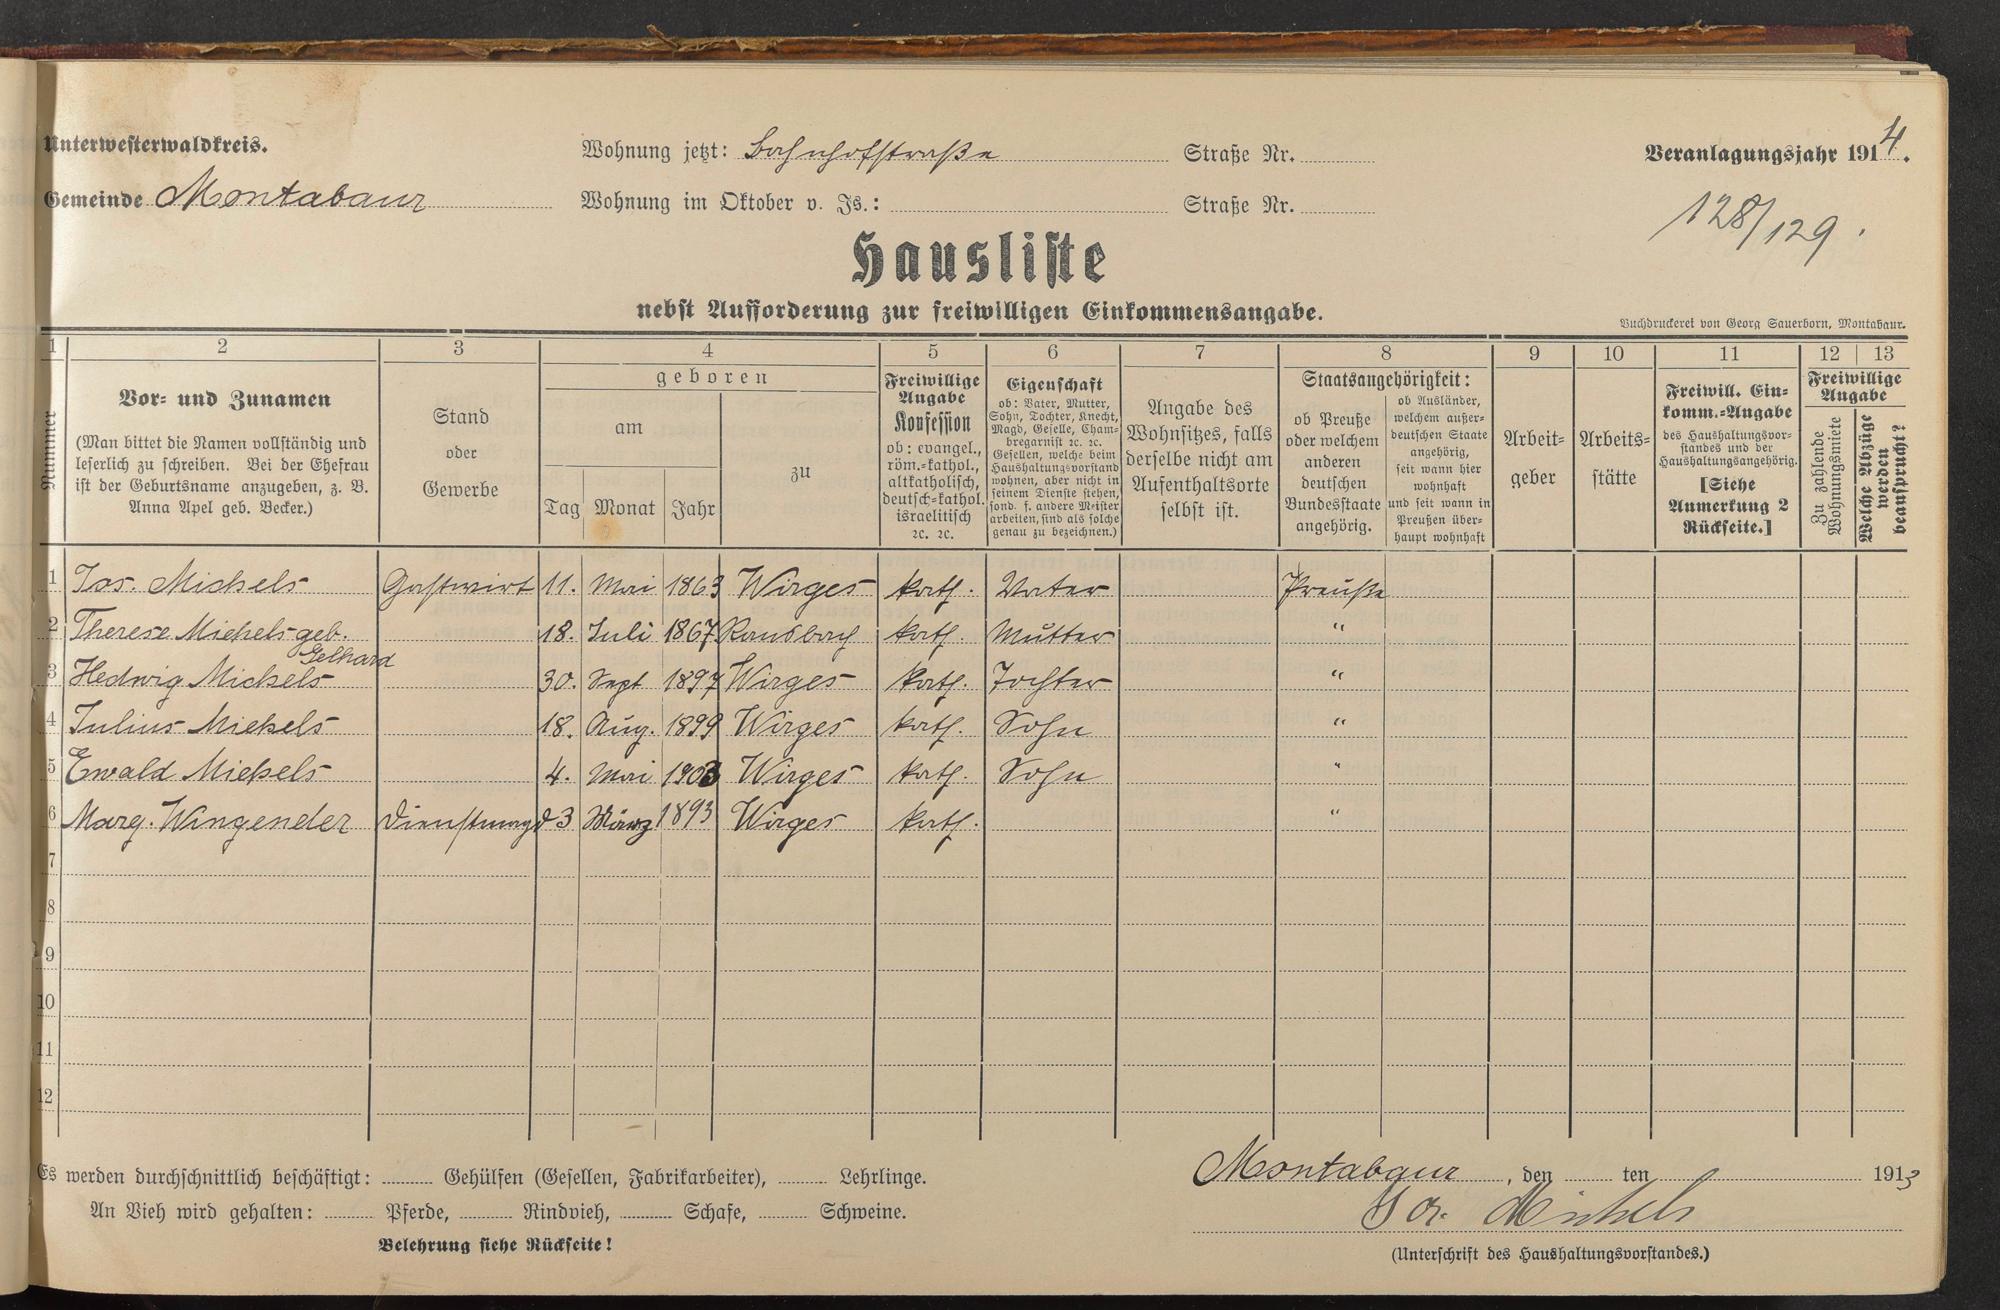 Unterwesterwaldkreis.
Wohnung jetzt: Bahnhofstraße Straße Nr.
Veranlagungsjahr 1914.
Gemeinde Montabaur
Wohnung im Oktober v. Js.: Straße Nr.
128/129.
Hausliste
nebst Aufforderung zur freiwilligen Einkommensangabe.
Buchdruckerei von Georg Sauerborn, Montabaur.
1 2 3 4 5 6 7 8 9 10 11 12 13
Nummer
Vor- und Zunamen
(Man bittet die Namen vollständig und
leserlich zu schreiben. Bei der Ehefrau
ist der Geburtsname anzugeben, z. B.
Anna Apel geb. Becker.)
Stand
oder
Gewerbe
geboren
am
Tag Monat Jahr
zu
Freiwillige
Angabe
Konfession
ob: evangel.,
röm.-kathol.,
altkatholisch,
deutsch-kathol.
israelitisch
ꝛc. ꝛc.
Eigenschaft
ob: Vater, Mutter,
Sohn, Tochter, Knecht,
Magd, Geselle, Cham-
bregarnist ꝛc. ꝛc.
Gesellen, welche beim
Haushaltungsvorstand
wohnen, aber nicht in
seinem Dienste stehen,
sond. f. andere Meister
arbeiten, sind als solche
genau zu bezeichnen.)
Angabe des
Wohnsitzes, falls
derselbe nicht am
Aufenthaltsorte
selbst ist.
Staatsangehörigkeit:
ob Preuße
oder welchem
anderen
deutschen
Bundesstaate
angehörig.
ob Ausländer,
welchem außer-
deutschen Staate
angehörig,
seit wann hier
wohnhaft
und seit wann in
Preußen über-
haupt wohnhaft
Arbeit-
geber
Arbeits-
stätte
Freiwill. Ein-
komm.-Angabe
des Haushaltungsvor-
standes und der
Haushaltungsangehörig.
[Siehe
Anmerkung 2
Rückseite.]
Freiwillige
Angabe
Zu zahlende
Wohnungsmiete
Welche Abzüge
werden
beansprucht?
1 Jos. Mickels Gastwirt 11. Mai 1863 Wirges kath. Vater Preuße
2 Therese Mickels geb. 18. Juli 1867 Ransbach kath. Mutter "
Gelhard
3 Hedwig Mickels 30. Sept 1897 Wirges kath. Tochter "
4 Julius Mickels 18. Aug. 1899 Wirges kath. Sohn "
5 Ewald Mickels 4. Mai 1903 Wirges kath. Sohn "
6 Marg. Wingender Dienstmagd 3 März 1893 Wirges kath. "
7
8
9
10
11
12
Es werden durchschnittlich beschäftigt: Gehülfen (Gesellen, Fabrikarbeiter), Lehrlinge.
Montabaur, den ten 1913
An Vieh wird gehalten: Pferde, Rindvieh, Schafe, Schweine.
Jos. Mickels
Belehrung siehe Rückseite!
(Unterschrift des Haushaltungsvorstandes.)